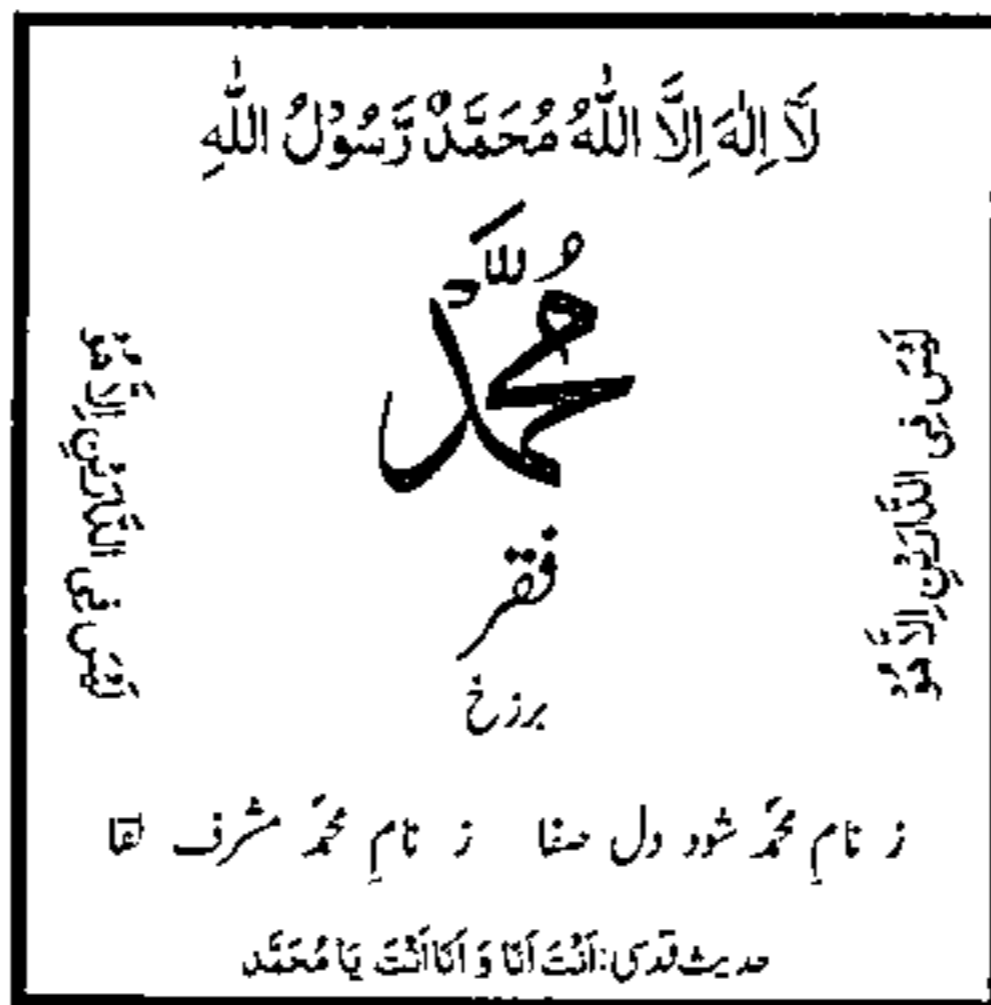 لَآ اِلٰهَ اِلَّا اللّٰهُ مُحَمَّدٌ رَّسُوْلُ اللّٰهِ
مُحَمَّد
فقر
برزخ
لَيْسَ فِى الدَّارَيْنِ اِلَّا هُوَ
لَيْسَ فِى الدَّارَيْنِ اِلَّا هُوَ
ز نامِ محمدؐ شود دل صفا ز نامِ محمدؐ مشرف لقا
حدیث قدسی: اَنْتَ اَنَا وَ اَنَا اَنْتَ يَا مُحَمَّد